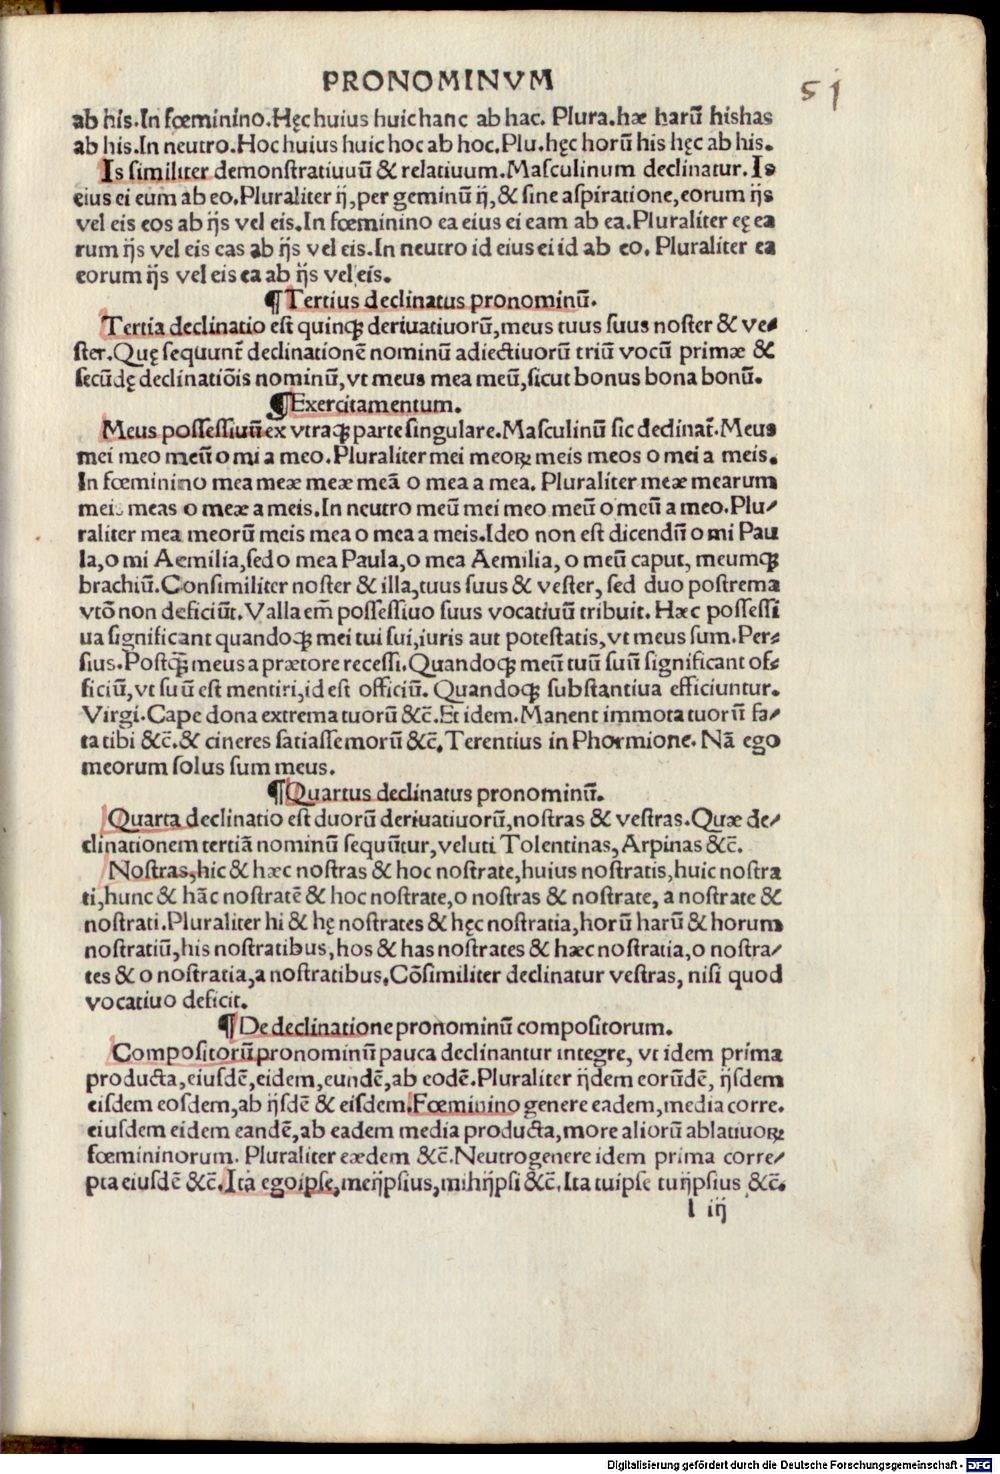 PRONOMINVM
51
ab his. In fœminino. Hęc huius huic hanc ab hac. Plura. hæ harū his has
ab his. In neutro. Hoc huius huic hoc ab hoc. Plu. hęc horū his hęc ab his.
Is similiter demonstratiuuū & relatiuum. Masculinum declinatur. Is
eius ei eum ab eo. Pluraliter ij, per geminū ij, & sine aspiratione, eorum ijs
vel eis eos ab ijs vel eis. In fœminino ea eius ei eam ab ea. Pluraliter eę ea
rum ijs vel eis eas ab ijs vel eis. In neutro id eius ei id ab eo. Pluraliter ea
eorum ijs vel eis ea ab ijs vel eis.
¶ Tertius declinatus pronominū.
Tertia declinatio est quinqꝫ deriuatiuorū, meus tuus suus noster & ve⸗
ster. Quę sequunt̃ declinationē nominū adiectiuorū triū vocū primæ &
secūdę declinatiōis nominū, vt meus mea meū, sicut bonus bona bonū.
¶ Exercitamentum.
Meus possessiuū ex vtraqꝫ parte singulare. Masculinū sic declinat̃. Meus
mei meo meū o mi a meo. Pluraliter mei meoꝝ meis meos o mei a meis.
In fœminino mea meæ meæ meā o mea a mea. Pluraliter meæ mearum
meis meas o meæ a meis. In neutro meū mei meo meū o meū a meo. Plu⸗
raliter mea meorū meis mea o mea a meis. Ideo non est dicendū o mi Pau
la, o mi Aemilia, sed o mea Paula, o mea Aemilia, o meū caput, meumqꝫ
brachiū. Consimiliter noster & illa, tuus suus & vester, sed duo postrema
vtō non deficiūt. Valla em̃ possessiuo suus vocatiuū tribuit. Hæc possessi
ua significant quandoqꝫ mei tui sui, iuris aut potestatis, vt meus sum. Per⸗
sius. Postq̃ꝫ meus a prætore recessi. Quandoqꝫ meū tuū suū significant of⸗
ficiū, vt suū est mentiri, id est officiū. Quandoqꝫ substantiua efficiuntur.
Virgi. Cape dona extrema tuorū &c̄. Et idem. Manent immota tuorū fa⸗
ta tibi &c̄. & cineres satiasse morū &c̄. Terentius in Phormione. Nā ego
meorum solus sum meus.
¶ Quartus declinatus pronominū.
Quarta declinatio est duorū deriuatiuorū, nostras & vestras. Quæ de⸗
clinationem tertiā nominū sequūtur, veluti Tolentinas, Arpinas &c̄.
Nostras, hic & hæc nostras & hoc nostrate, huius nostratis, huic nostra
ti, hunc & hāc nostratē & hoc nostrate, o nostras & nostrate, a nostrate &
nostrati. Pluraliter hi & hę nostrates & hęc nostratia, horū harū & horum
nostratiū, his nostratibus, hos & has nostrates & hæc nostratia, o nostra⸗
tes & o nostratia, a nostratibus. Cōsimiliter declinatur vestras, nisi quod
vocatiuo deficit.
¶ De declinatione pronominū compositorum.
Compositorū pronominū pauca declinantur integre, vt idem prima
producta, eiusdē, eidem, eundē, ab eodē. Pluraliter ijdem eorūdē, ijsdem
eisdem eosdem, ab ijsdē & eisdem. Fœminino genere eadem, media corre.
eiusdem eidem eandē, ab eadem media producta, more aliorū ablatiuoꝝ
fœmininorum. Pluraliter eædem &c̄. Neutro genere idem prima corre⸗
pta eiusdē &c̄. Ita egoipse, meijpsius, mihijpsi &c̄. Ita tuipse tuijpsius &c̄.
l iij
Digitalisierung gefördert durch die Deutsche Forschungsgemeinschaft - DFG